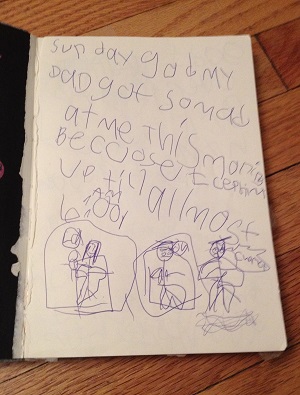 sunday god my
DAD got so mad
at me this morning
Becuose I
up till allmost
6:00
AM